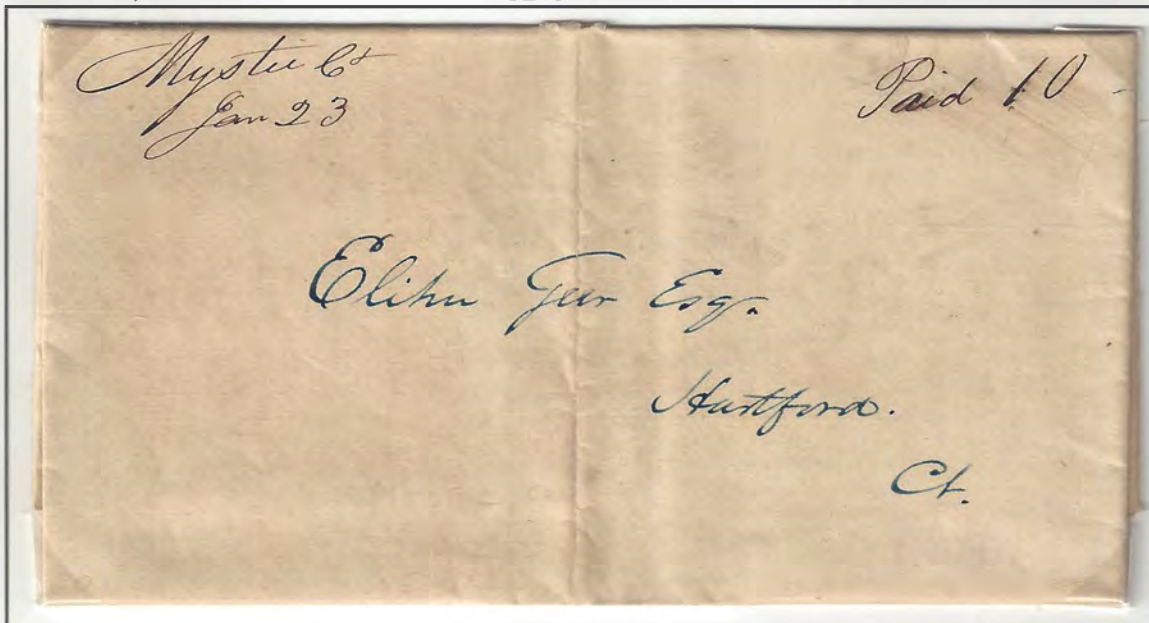 Mystic Ct
Jan 23
Paid 10
Elihu Geer Esq.
Hartford.
Ct.